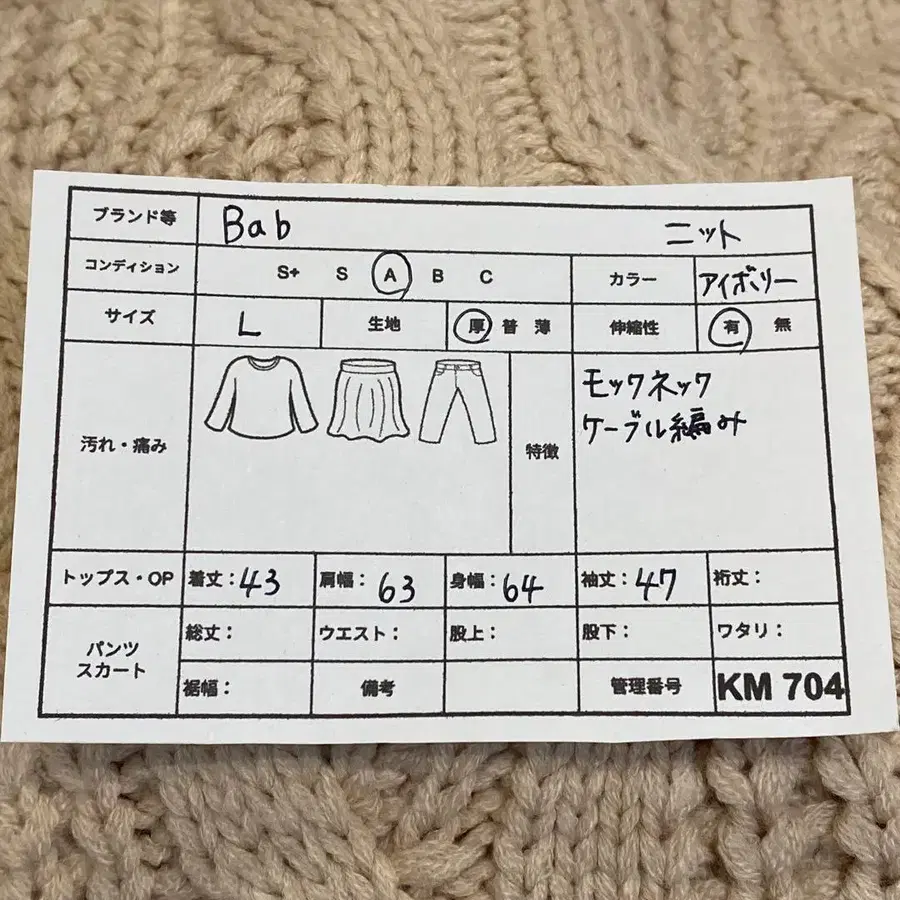 ブランド等 Bab ニット
コンディション S+ S A B C カラー アイボリー
サイズ L 生地 厚 普 薄 伸縮性 有 無
汚れ・痛み 特徴 モックネック
ケーブル編み
トップス・OP 着丈:43 肩幅:63 身幅:64 袖丈:47 裄丈:
パンツ
スカート
総丈: ウエスト: 股上: 股下: ワタリ:
裾幅: 備考 管理番号 KM 704